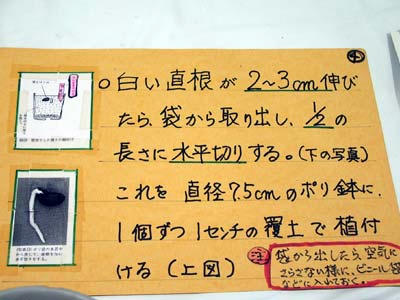 ○白い直根が2~3cm伸び
たら、袋から取り出し、1/2の
長さに水平切りする。(下の写真)
これを直径7.5cmのポリ鉢に、
1個ずつ1センチの覆土で植付
ける(上図)
注 袋から出したら、空気に
さらさない様に、ビニール袋
などに入れておく。